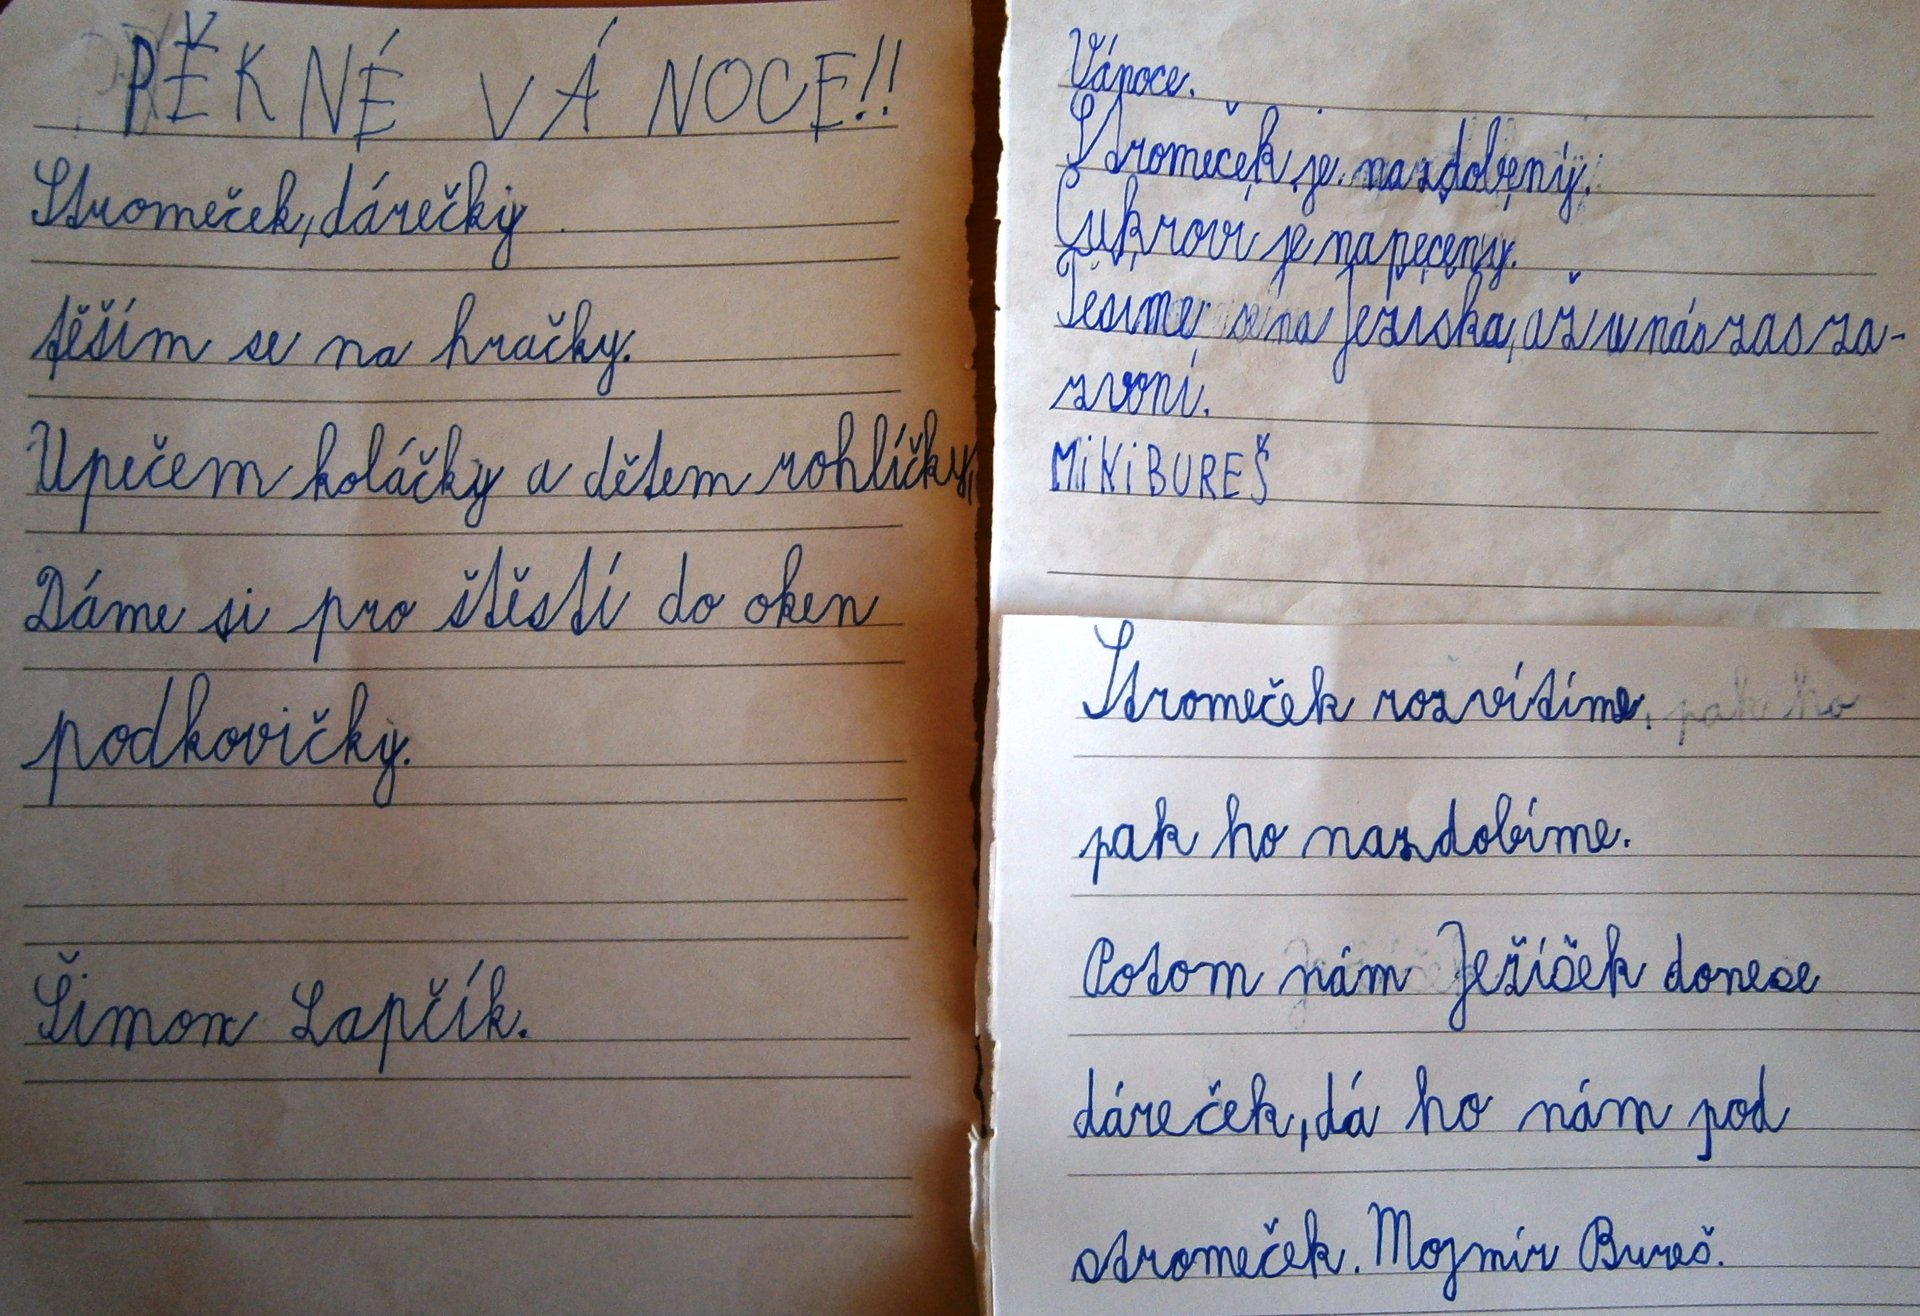 PĚKNÉ VÁNOCE!!
Stromeček, dárečky
těším se na hračky.
Upečem koláčky a dětem rohlíčky,
Dáme si pro štěstí do oken
podkovičky.
Šimon Lapčík.
Vánoce.
Stromeček je nazdobený.
Cukrovi je napečený.
Těsíme se na Ježiska, až u nás zas za-
zvoní.
MiKi BUREŠ
Stromeček rozvítíme. pak ho
pak ho nazdobíme.
Potom nám Ježíšek donese
dáreček, dá ho nám pod
stromeček. Mojmír Bureš.